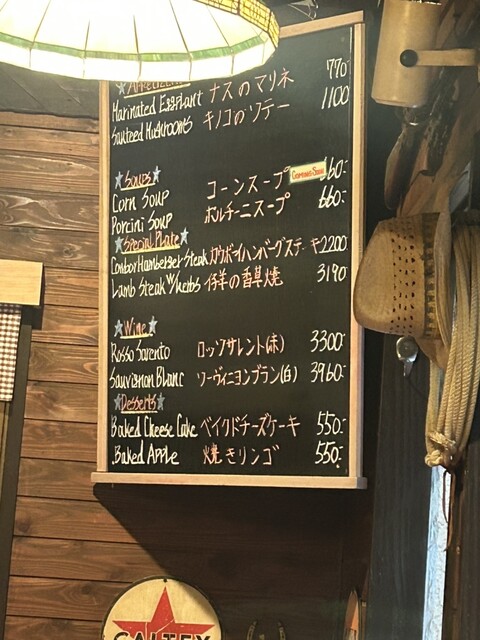 Appetizers
Marinated Eggplant ナスのマリネ 770
Sauteed Mushrooms キノコのソテー 1100
Soups
Corn Soup コーンスープ 660-
Porcini Soup ポルチーニスープ 660-
Special Plate
Cowboy Hamberger Steak カウボーイハンバーグステーキ 2200
Lamb Steak w/herbs 仔羊の香草焼 3190
Wine
Rosso Sarento ロッソサレント(赤) 3300-
Sauvignon Blanc ソーヴィニヨンブラン(白) 3960-
Desserts
Baked Cheese Cake ベイクドチーズケーキ 550-
Baked Apple 焼きリンゴ 550-
CALTEX